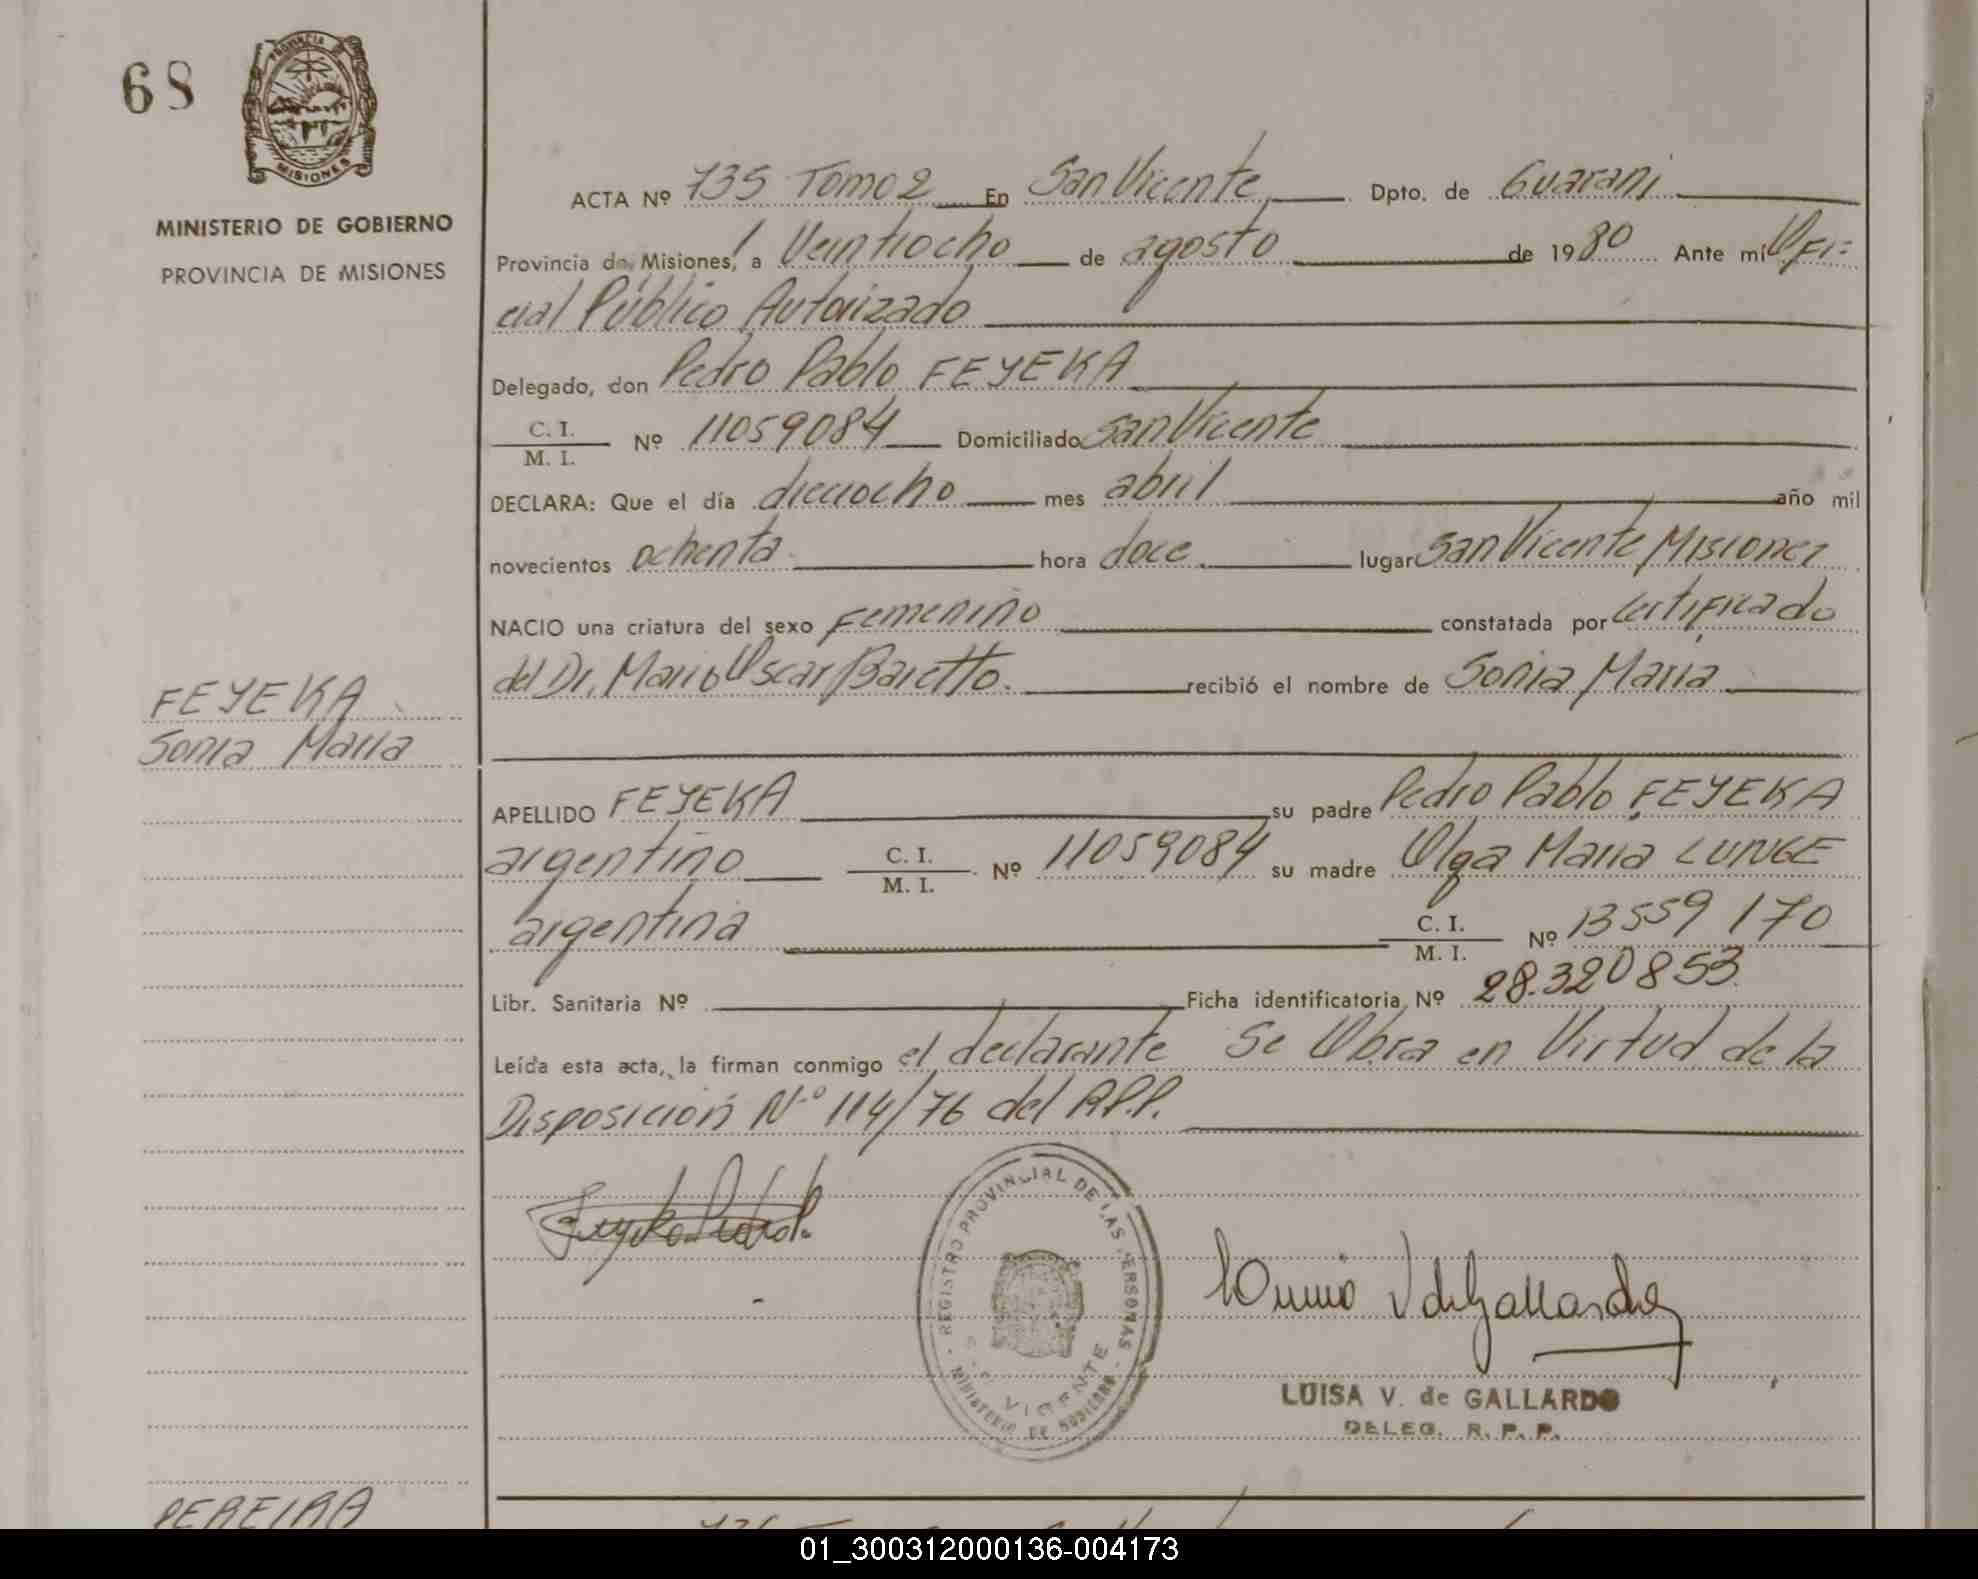 68
PROVINCIA
MISIONES
MINISTERIO DE GOBIERNO
PROVINCIA DE MISIONES
ACTA Nº 735 Tomo 2 En San Vicente Dpto. de Guarani
Provincia de Misiones, a Veintiocho de agosto de 1980 Ante mí Ofi=
cial Público Autorizado
Delegado, don Pedro Pablo FEYEKA
C. I.
M. I. Nº 11059084 Domiciliado San Vicente
DECLARA: Que el día dieciocho mes abril año mil
novecientos ochenta hora doce lugar San Vicente Misiones
NACIO una criatura del sexo Femenino constatada por Certificado
del Dr. Mario Oscar Baretto. recibió el nombre de Sonia Maria
FEYEKA
Sonia Maria
APELLIDO FEYEKA su padre Pedro Pablo FEYEKA
argentino C. I.
M. I. Nº 11059084 su madre Olga Maria LUNGE
argentina C. I.
M. I. Nº 13559170
Libr. Sanitaria Nº Ficha identificatoria Nº 28.320853.
Leída esta acta, la firman conmigo el declarante Se Obra en Virtud de la
Disposición Nº 114/76 del R.P.P.
REGISTRO PROVINCIAL DE LAS PERSONAS
VICENTE
MINISTERIO DE GOBIERNO
LUISA V. de GALLARDO
DELEG. R. P. P.
PEREIRA
01_300312000136-004173